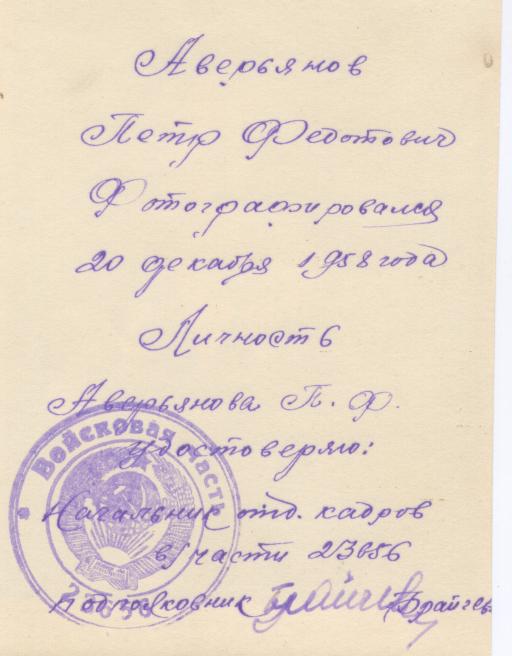 Аверьянов
Петр Федотович
Фотографировался
20 декабря 1958 года
Личность
Аверьянова П. Ф.
удостоверяю:
Начальник отд. кадров
в/части 23656
Подполковник
Войсковая часть
23656